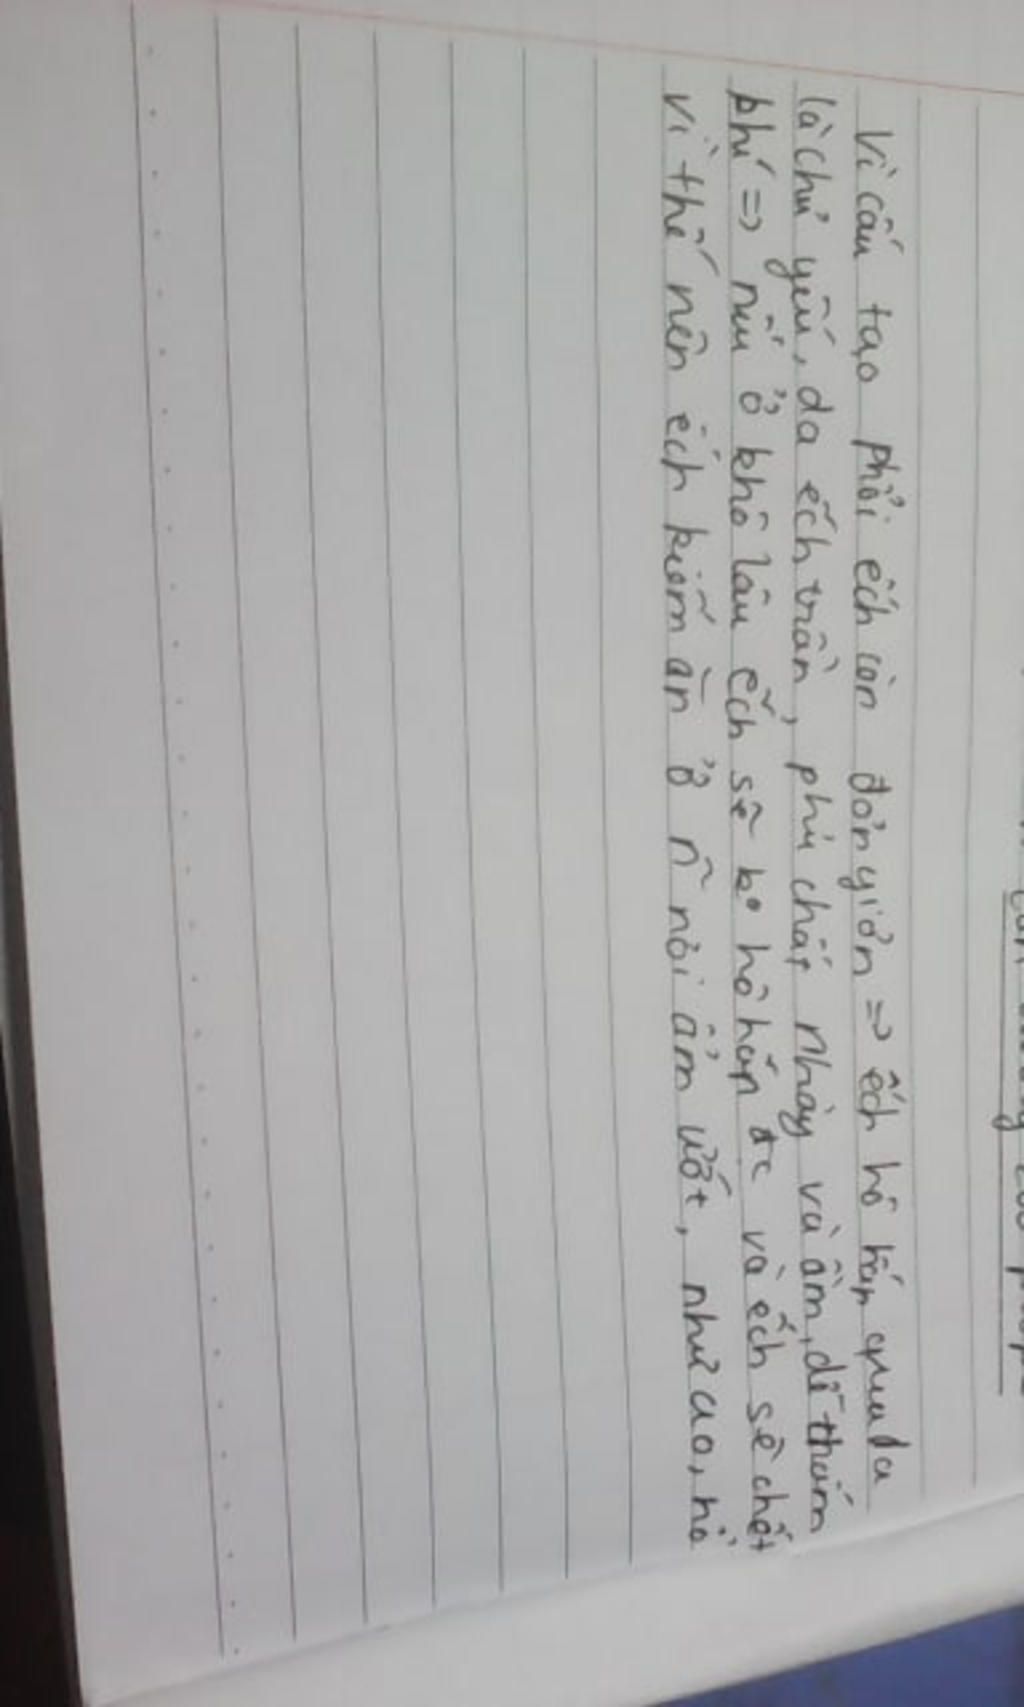 Vì cấu tạo phổi ếch còn đơn giản => ếch hô hấp qua da
là chủ yếu, da ếch trần, phủ chất nhày và ẩm, dễ thấm
khí => nếu ở khô lâu ếch sẽ ko hô hấp đc và ếch sẽ chết
Vì thế nên ếch kiếm ăn ở n~ nơi ẩm ướt, như ao, hồ